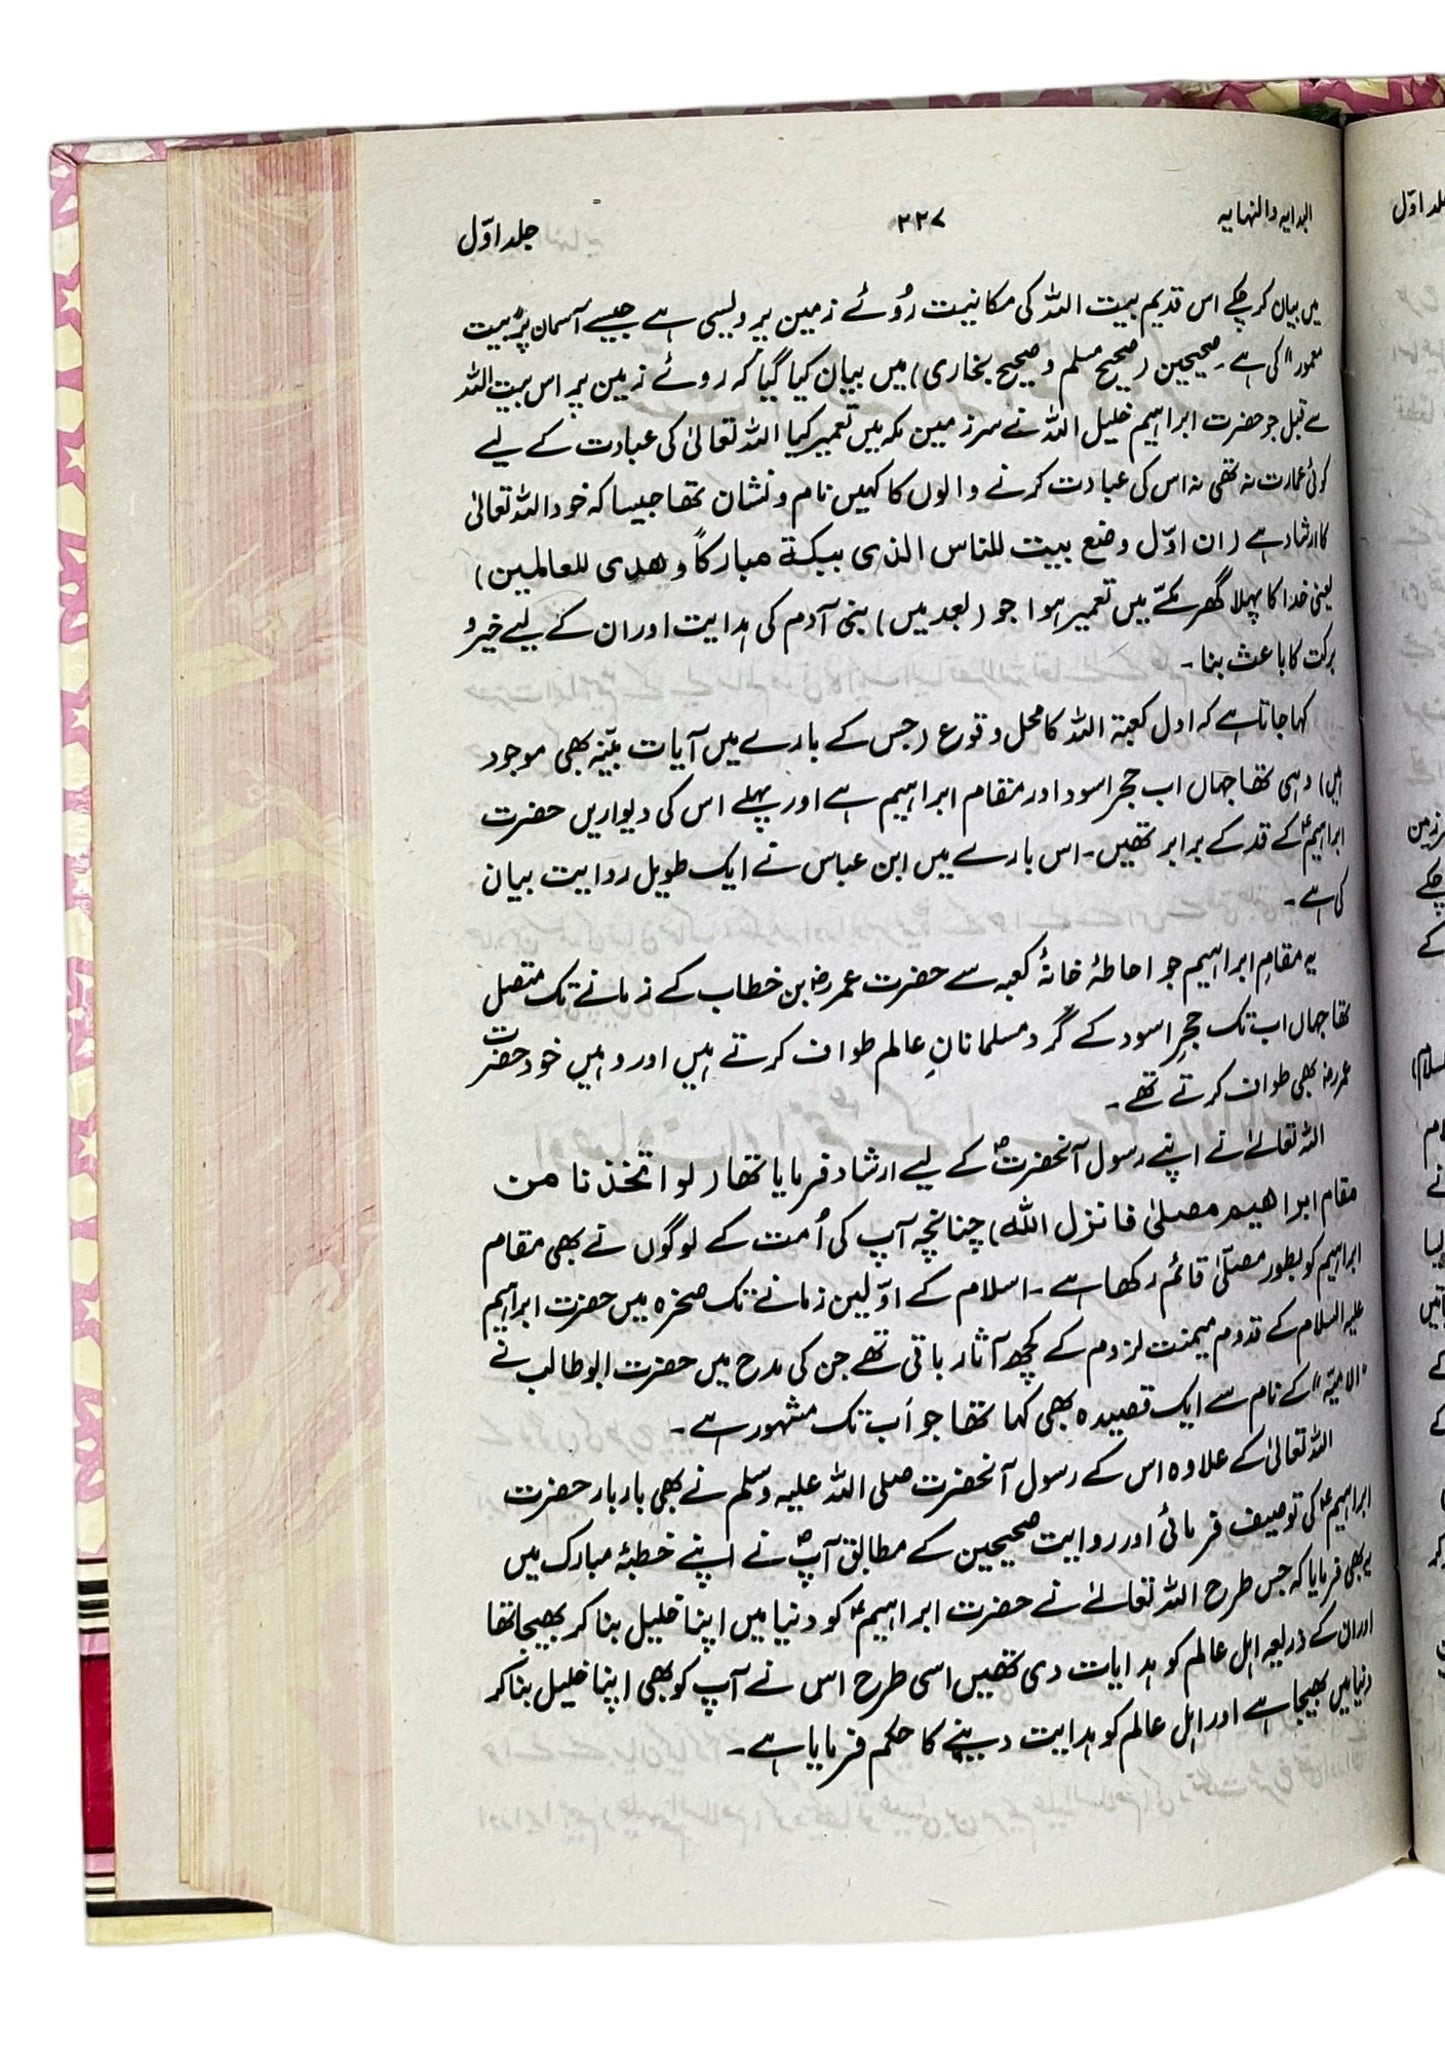 البدایہ والنہایہ ۲۲۷ جلد اوّل
میں بیان کر چکے اس قدیم بیت اللہ کی مکانیت رُوئے زمین پر ویسی ہے جیسے آسمان پر "بیت
معمور" کی ہے۔ صحیحین (صحیح مسلم و صحیح بخاری) میں بیان کیا گیا کہ روئے زمین پر اس بیت اللہ
سے قبل جو حضرت ابراہیم خلیل اللہ نے سرزمین مکہ میں تعمیر کیا اللہ تعالیٰ کی عبادت کے لیے
کوئی عمارت نہ تھی نہ اس کی عبادت کرنے والوں کا کہیں نام و نشان تھا جیسا کہ خود اللہ تعالیٰ
کا ارشاد ہے (ان اوّل وضع بیت للناس الذی ببکۃ مبارکاً وھدی للعالمین)
یعنی خدا کا پہلا گھر مکّے میں تعمیر ہوا جو (بعد میں) بنی آدم کی ہدایت اور ان کے لیے خیر و
برکت کا باعث بنا۔
کہا جاتا ہے کہ اول کعبۃ اللہ کا محل وقوع (جس کے بارے میں آیات بیّنہ بھی موجود
ہیں) وہی تھا جہاں اب حجر اسود اور مقام ابراہیم ہے اور پہلے اس کی دیواریں حضرت
ابراہیمؑ کے قد کے برابر تھیں۔ اس بارے میں ابن عباس نے ایک طویل روایت بیان
کی ہے۔
یہ مقامِ ابراہیم جو احاطۂ خانۂ کعبہ سے حضرت عمرؓ بن خطاب کے زمانے تک متصل
تھا جہاں اب تک حجرِ اسود کے گرد مسلمانانِ عالم طواف کرتے ہیں اور وہیں خود حضرت
عمرؓ بھی طواف کرتے تھے۔
اللہ تعالےٰ نے اپنے رسول آنحضرتؐ کے لیے ارشاد فرمایا تھا (لو اتخذنا من
مقام ابراھیم مصلیٰ فانزل اللہ) چنانچہ آپ کی اُمت کے لوگوں نے بھی مقام
ابراہیم کو بطور مصلّیٰ قائم رکھا ہے۔ اسلام کے اوّلین زمانے تک صخرہ میں حضرت ابراہیم
علیہ السلام کے قدوم میمنت لزوم کے کچھ آثار باقی تھے جن کی مدح میں حضرت ابوطالب نے
"الامیّہ" کے نام سے ایک قصیدہ بھی کہا تھا جو اَب تک مشہور ہے۔
اللہ تعالیٰ کے علاوہ اس کے رسول آنحضرت صلی اللہ علیہ وسلم نے بھی بار بار حضرت
ابراہیمؑ کی توصیف فرمائی اور روایت صحیحین کے مطابق آپؐ نے اپنے خطبۂ مبارک میں
یہ بھی فرمایا کہ جس طرح اللہ تعالےٰ نے حضرت ابراہیمؑ کو دنیا میں اپنا خلیل بنا کر بھیجا تھا
اور ان کے ذریعہ اہل عالم کو ہدایات دی تھیں اسی طرح اس نے آپ کو بھی اپنا خلیل بنا کر
دنیا میں بھیجا ہے اور اہل عالم کو ہدایت دینے کا حکم فرمایا ہے۔
جلد اوّل